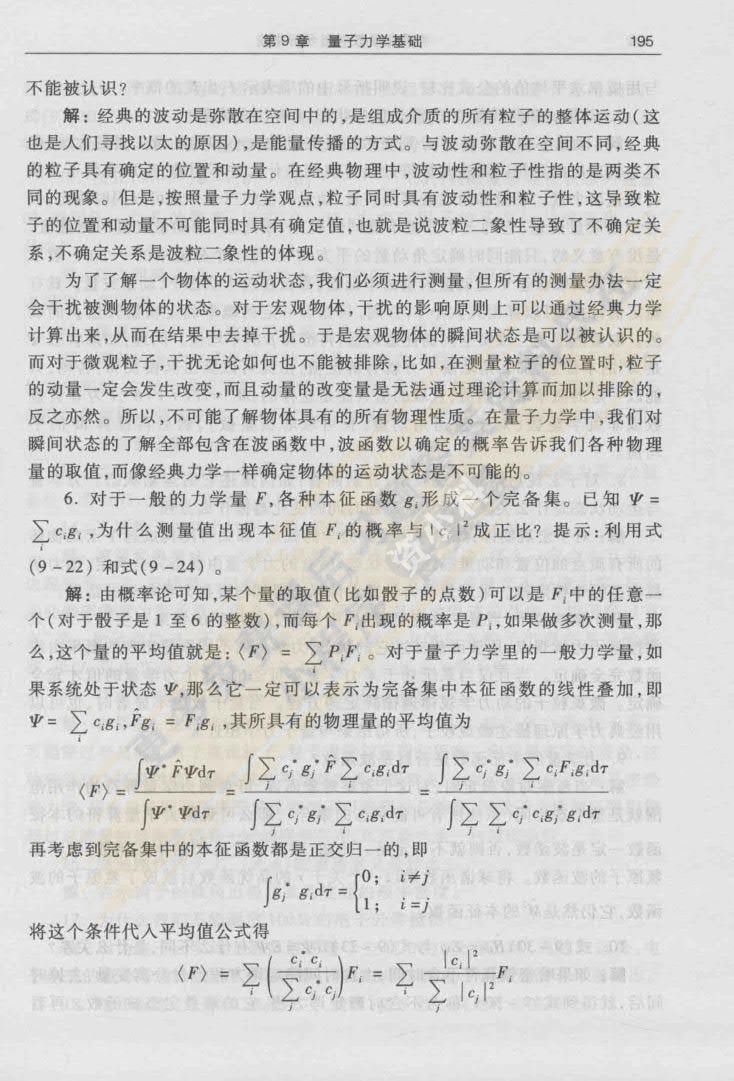 第9章 量子力学基础 195
不能被认识?
解: 经典的波动是弥散在空间中的,是组成介质的所有粒子的整体运动(这
也是人们寻找以太的原因),是能量传播的方式。与波动弥散在空间不同,经典
的粒子具有确定的位置和动量。在经典物理中,波动性和粒子性指的是两类不
同的现象。但是,按照量子力学观点,粒子同时具有波动性和粒子性,这导致粒
子的位置和动量不可能同时具有确定值,也就是说波粒二象性导致了不确定关
系,不确定关系是波粒二象性的体现。
为了了解一个物体的运动状态,我们必须进行测量,但所有的测量办法一定
会干扰被测物体的状态。对于宏观物体,干扰的影响原则上可以通过经典力学
计算出来,从而在结果中去掉干扰。于是宏观物体的瞬间状态是可以被认识的。
而对于微观粒子,干扰无论如何也不能被排除,比如,在测量粒子的位置时,粒子
的动量一定会发生改变,而且动量的改变量是无法通过理论计算而加以排除的,
反之亦然。所以,不可能了解物体具有的所有物理性质。在量子力学中,我们对
瞬间状态的了解全部包含在波函数中,波函数以确定的概率告诉我们各种物理
量的取值,而像经典力学一样确定物体的运动状态是不可能的。
6. 对于一般的力学量 F,各种本征函数 g_i 形成一个完备集。已知 Ψ =
∑_i c_i g_i ,为什么测量值出现本征值 F_i 的概率与 |c_i|² 成正比? 提示:利用式
(9-22) 和式(9-24)。
解: 由概率论可知,某个量的取值(比如骰子的点数)可以是 F_i 中的任意一
个(对于骰子是 1 至 6 的整数),而每个 F_i 出现的概率是 P_i,如果做多次测量,那
么,这个量的平均值就是:⟨F⟩ = ∑_i P_i F_i 。对于量子力学里的一般力学量,如
果系统处于状态 Ψ,那么它一定可以表示为完备集中本征函数的线性叠加,即
Ψ = ∑_i c_i g_i , F̂g_i = F_i g_i ,其所具有的物理量的平均值为
⟨F⟩ = ∫Ψ* F̂Ψdτ / ∫Ψ* Ψdτ = ∫∑_j c_j* g_j* F̂ ∑_i c_i g_i dτ / ∫∑_j c_j* g_j* ∑_i c_i g_i dτ = ∫∑_j c_j* g_j* ∑_i c_i F_i g_i dτ / ∫∑_j ∑_i c_j* c_i g_j* g_i dτ
再考虑到完备集中的本征函数都是正交归一的,即
∫g_j* g_i dτ = {0; i≠j
1; i=j
将这个条件代入平均值公式得
⟨F⟩ = ∑_i ( c_i* c_i / ∑_j c_j* c_j ) F_i = ∑_i |c_i|² / ∑_j |c_j|² F_i